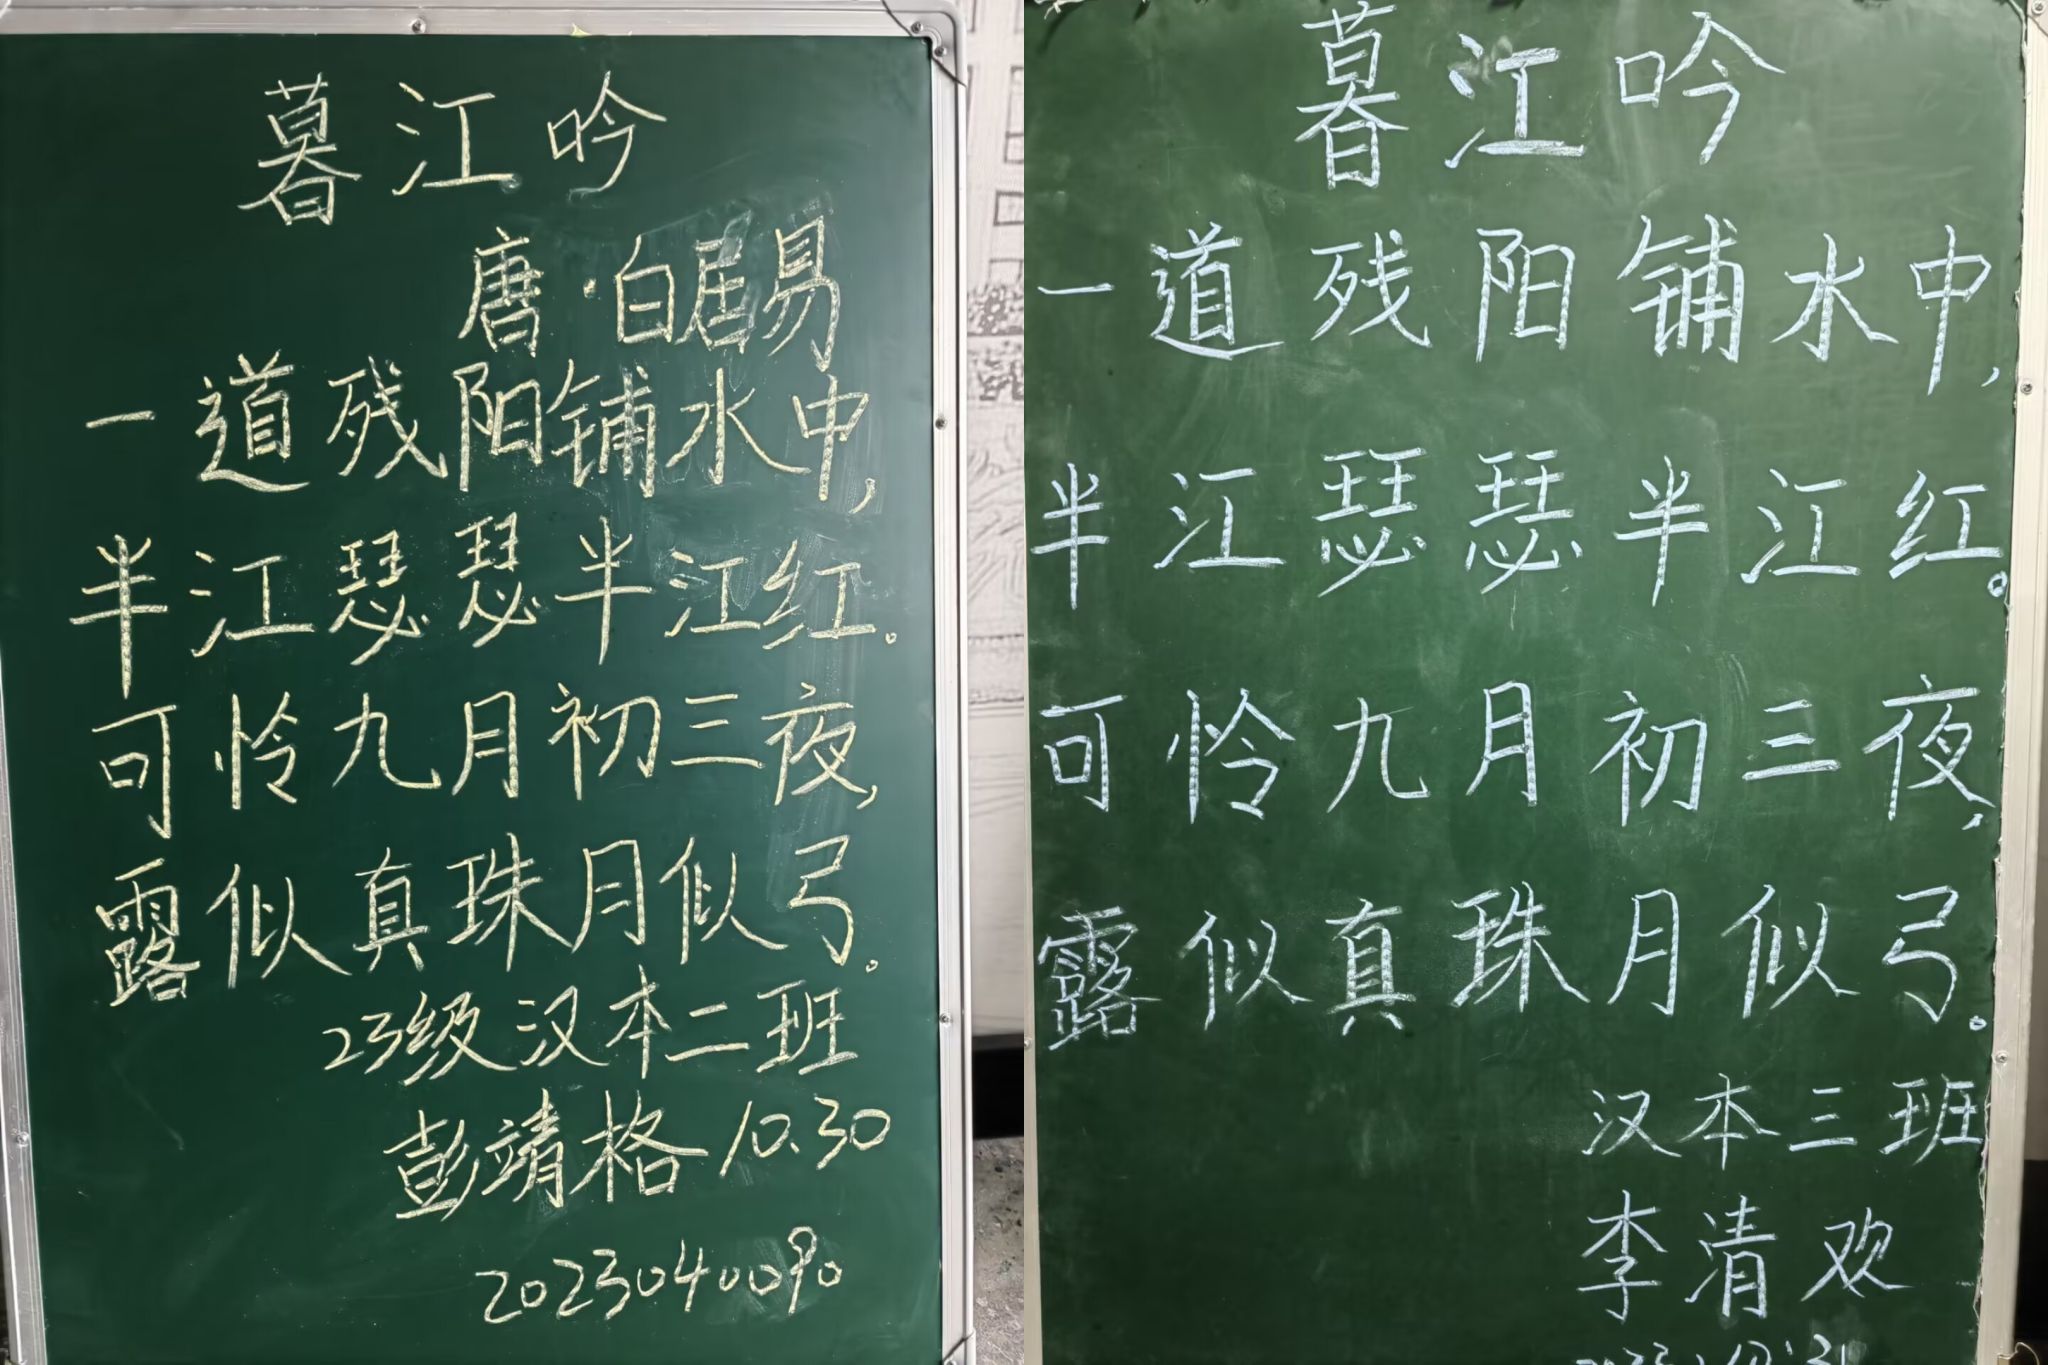 暮江吟
唐·白居易
一道残阳铺水中,
半江瑟瑟半江红。
可怜九月初三夜,
露似真珠月似弓。
23级汉本二班
彭靖格 10.30
2023040090
暮江吟
一道残阳铺水中,
半江瑟瑟半江红。
可怜九月初三夜,
露似真珠月似弓。
汉本三班
李清欢